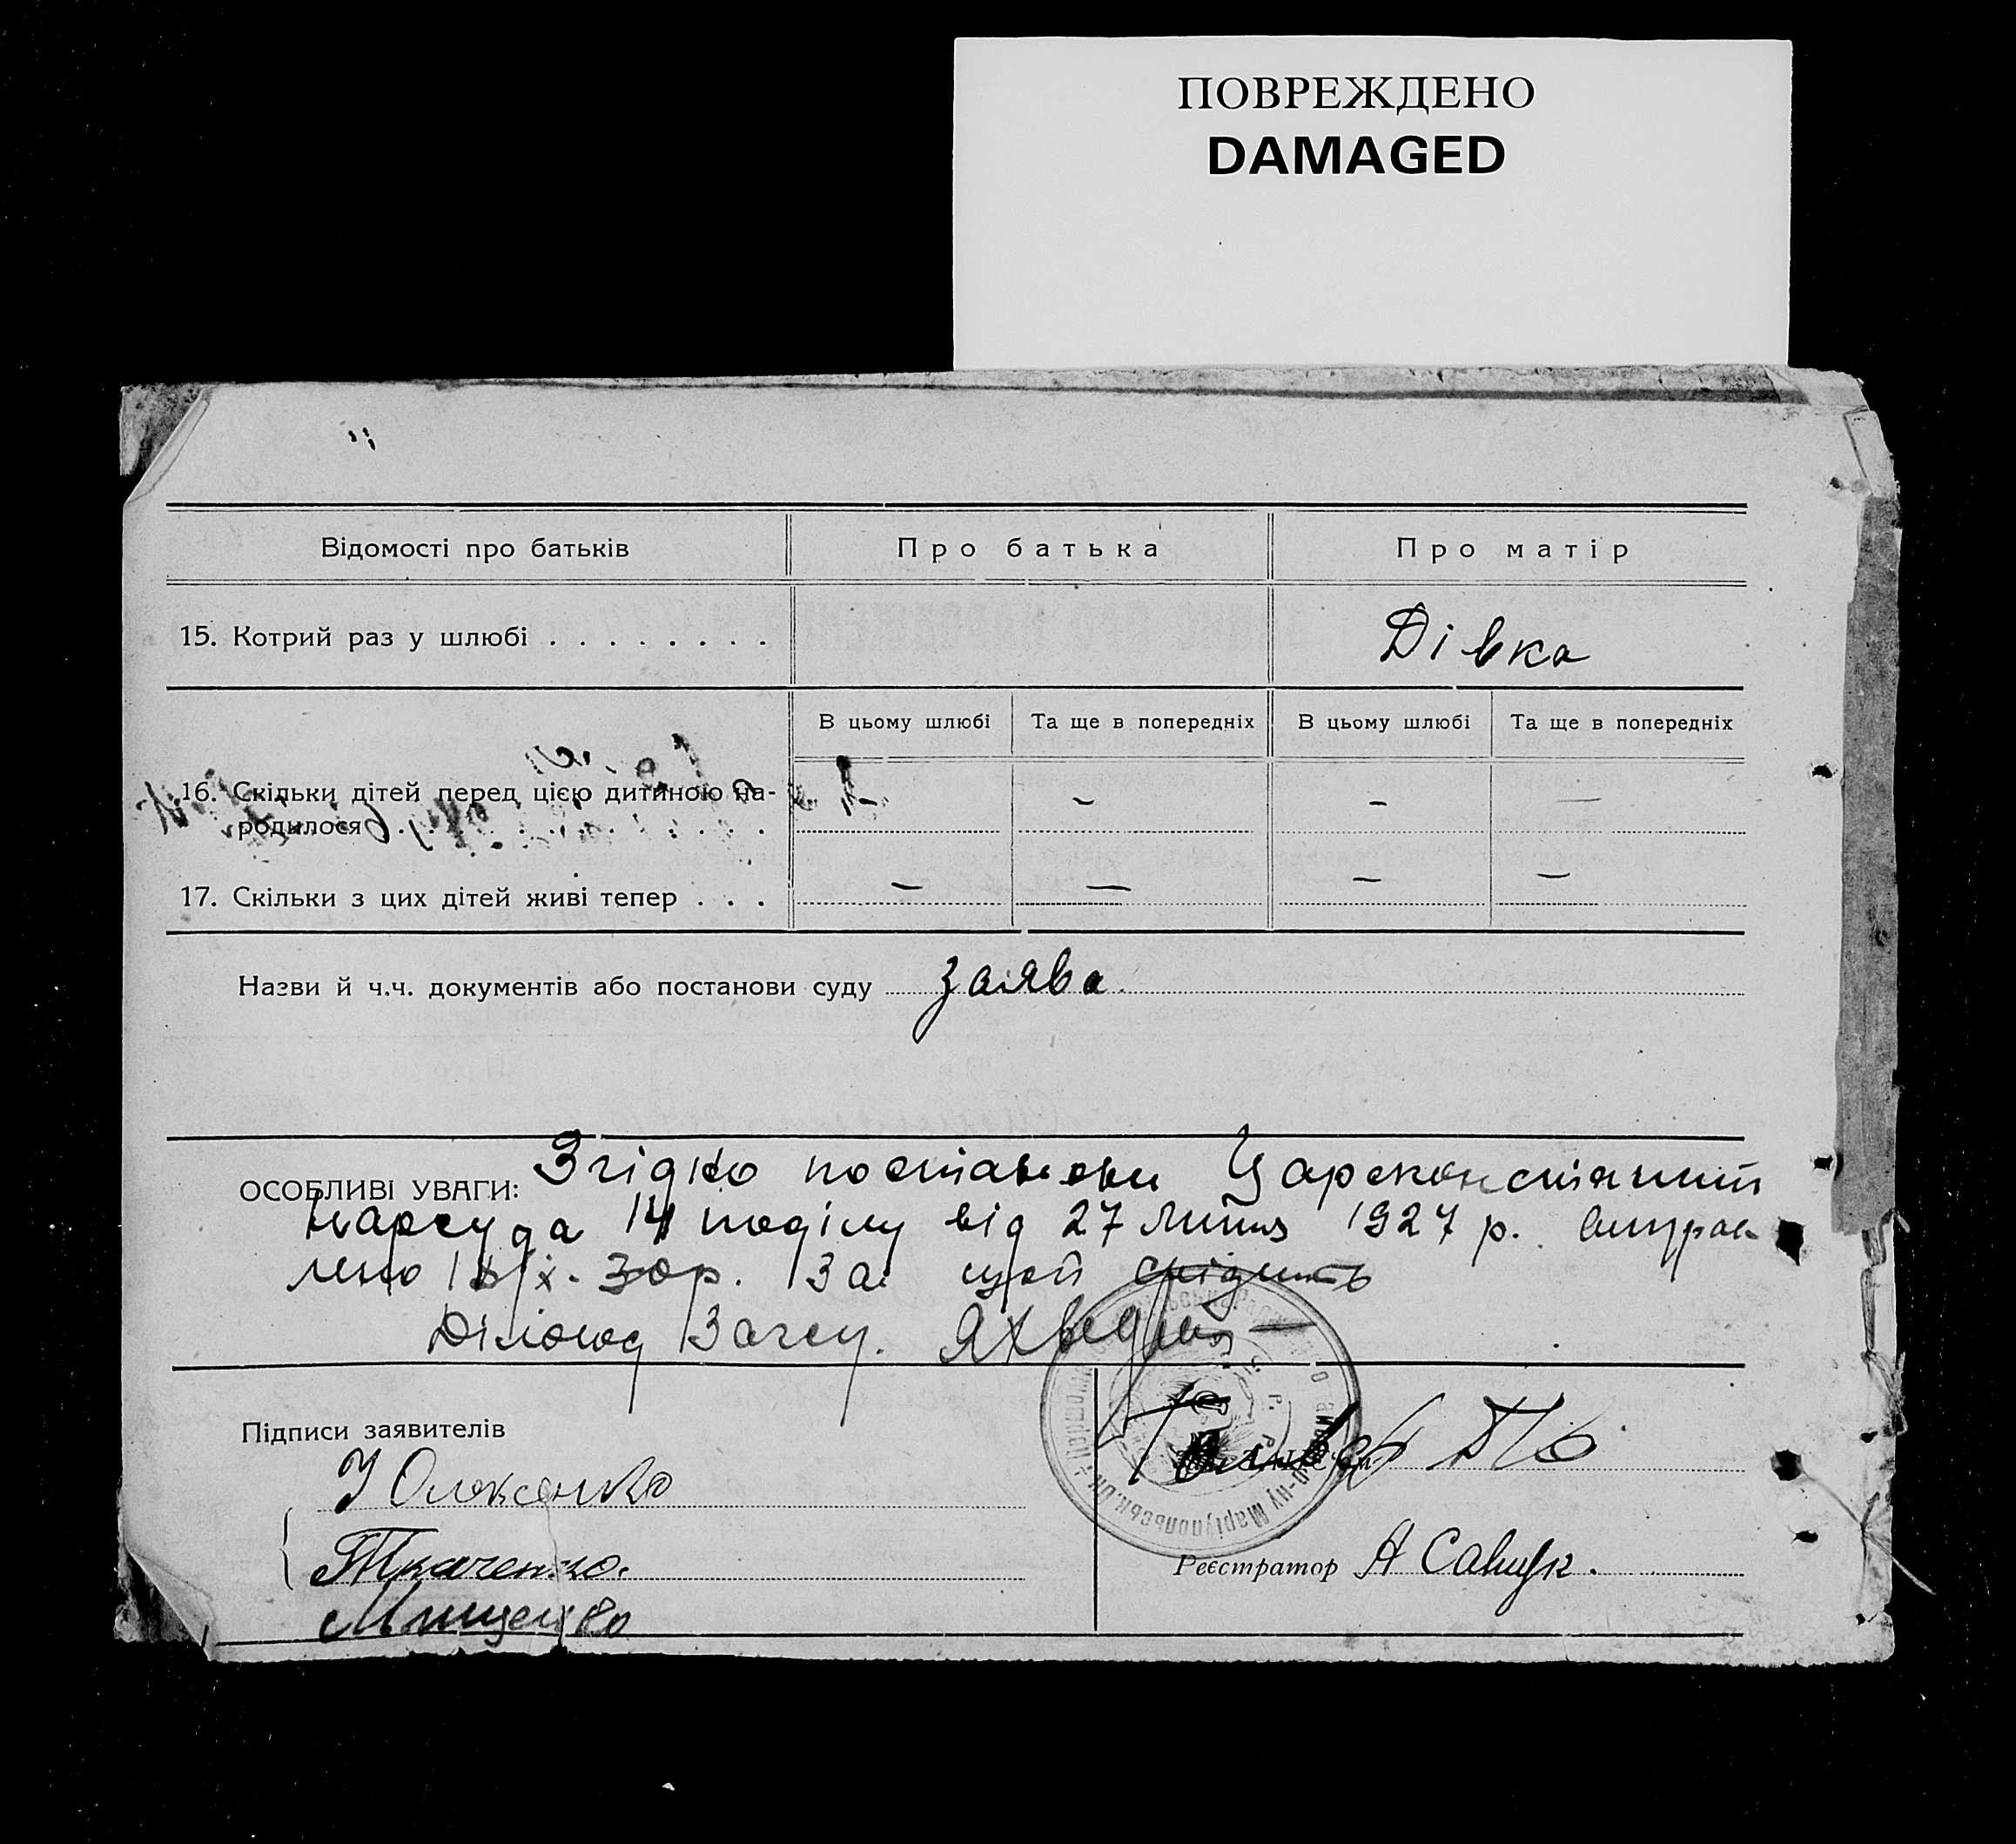 ПОВРЕЖДЕНО
DAMAGED
Відомості про батьків
Про батька
Про матір
15. Котрий раз у шлюбі . . . . . . . .
Дівка
В цьому шлюбі
Та ще в попередніх
В цьому шлюбі
Та ще в попередніх
16. Скільки дітей перед цією дитиною на-
родилося
–
–
—
17. Скільки з цих дітей живі тепер . . .
–
—
–
–
Назви й ч.ч. документів або постанови суду заява
ОСОБЛИВІ УВАГИ: Згідно постанови Царсконстянит
нарсуда 14 поділу від 27 липня 1927 р. виправ
лено IX. 30р. За
Діловод Загсу.
Підписи заявителів
Олексенко
Ткаченко.
Мищенко
Реєстратор А Савчук.